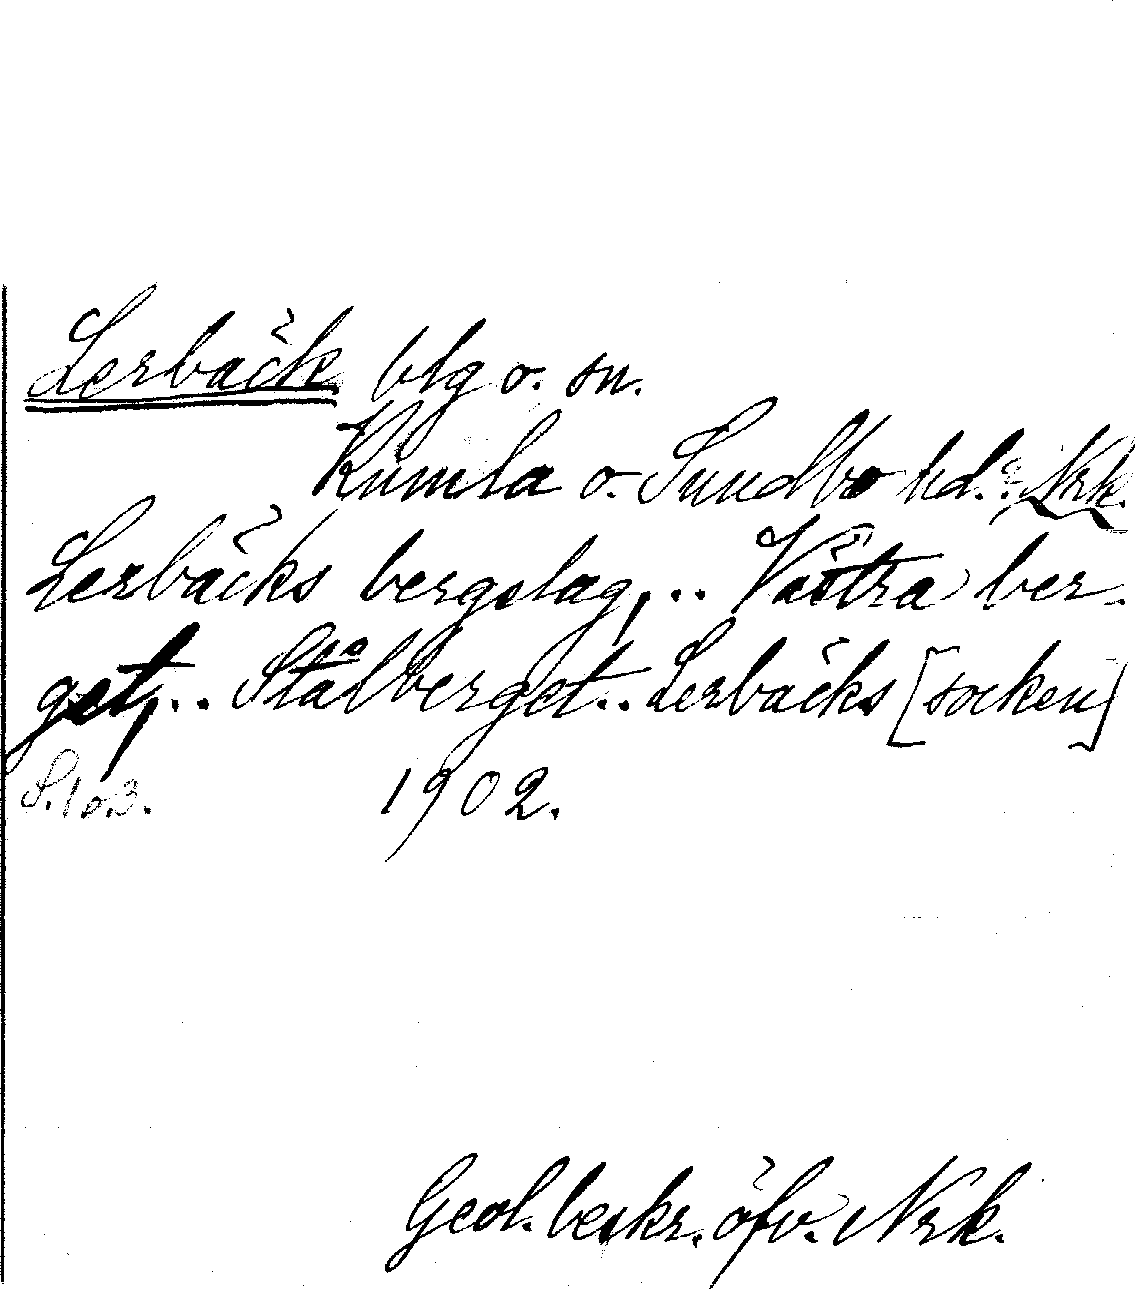 Lerbäck blg o. sn.
Kumla o. Sundbo hd.: Nrk.
Lerbäcks bergslag, .. Västra ber-
get, .. Stålberget .. Lerbäcks [socken]
S. 1 o. 3. 1902.
Geol. beskr. öfv. Nrk.